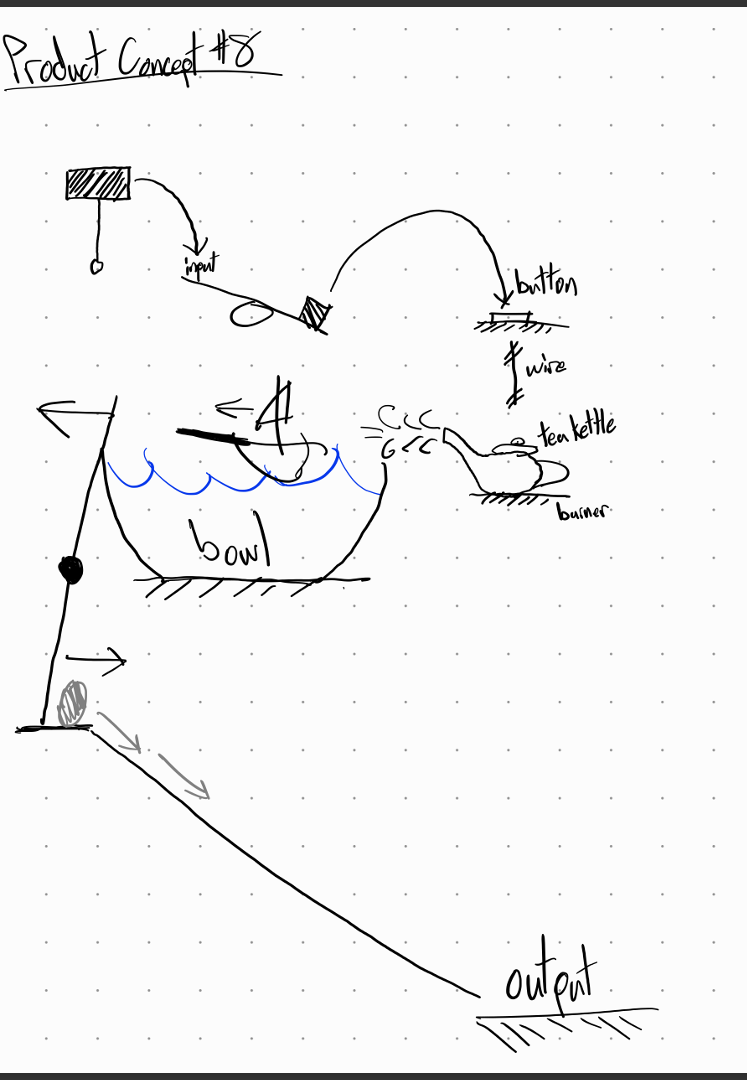 Product Concept #8
input
button
wire
tea kettle
burner
bowl
output